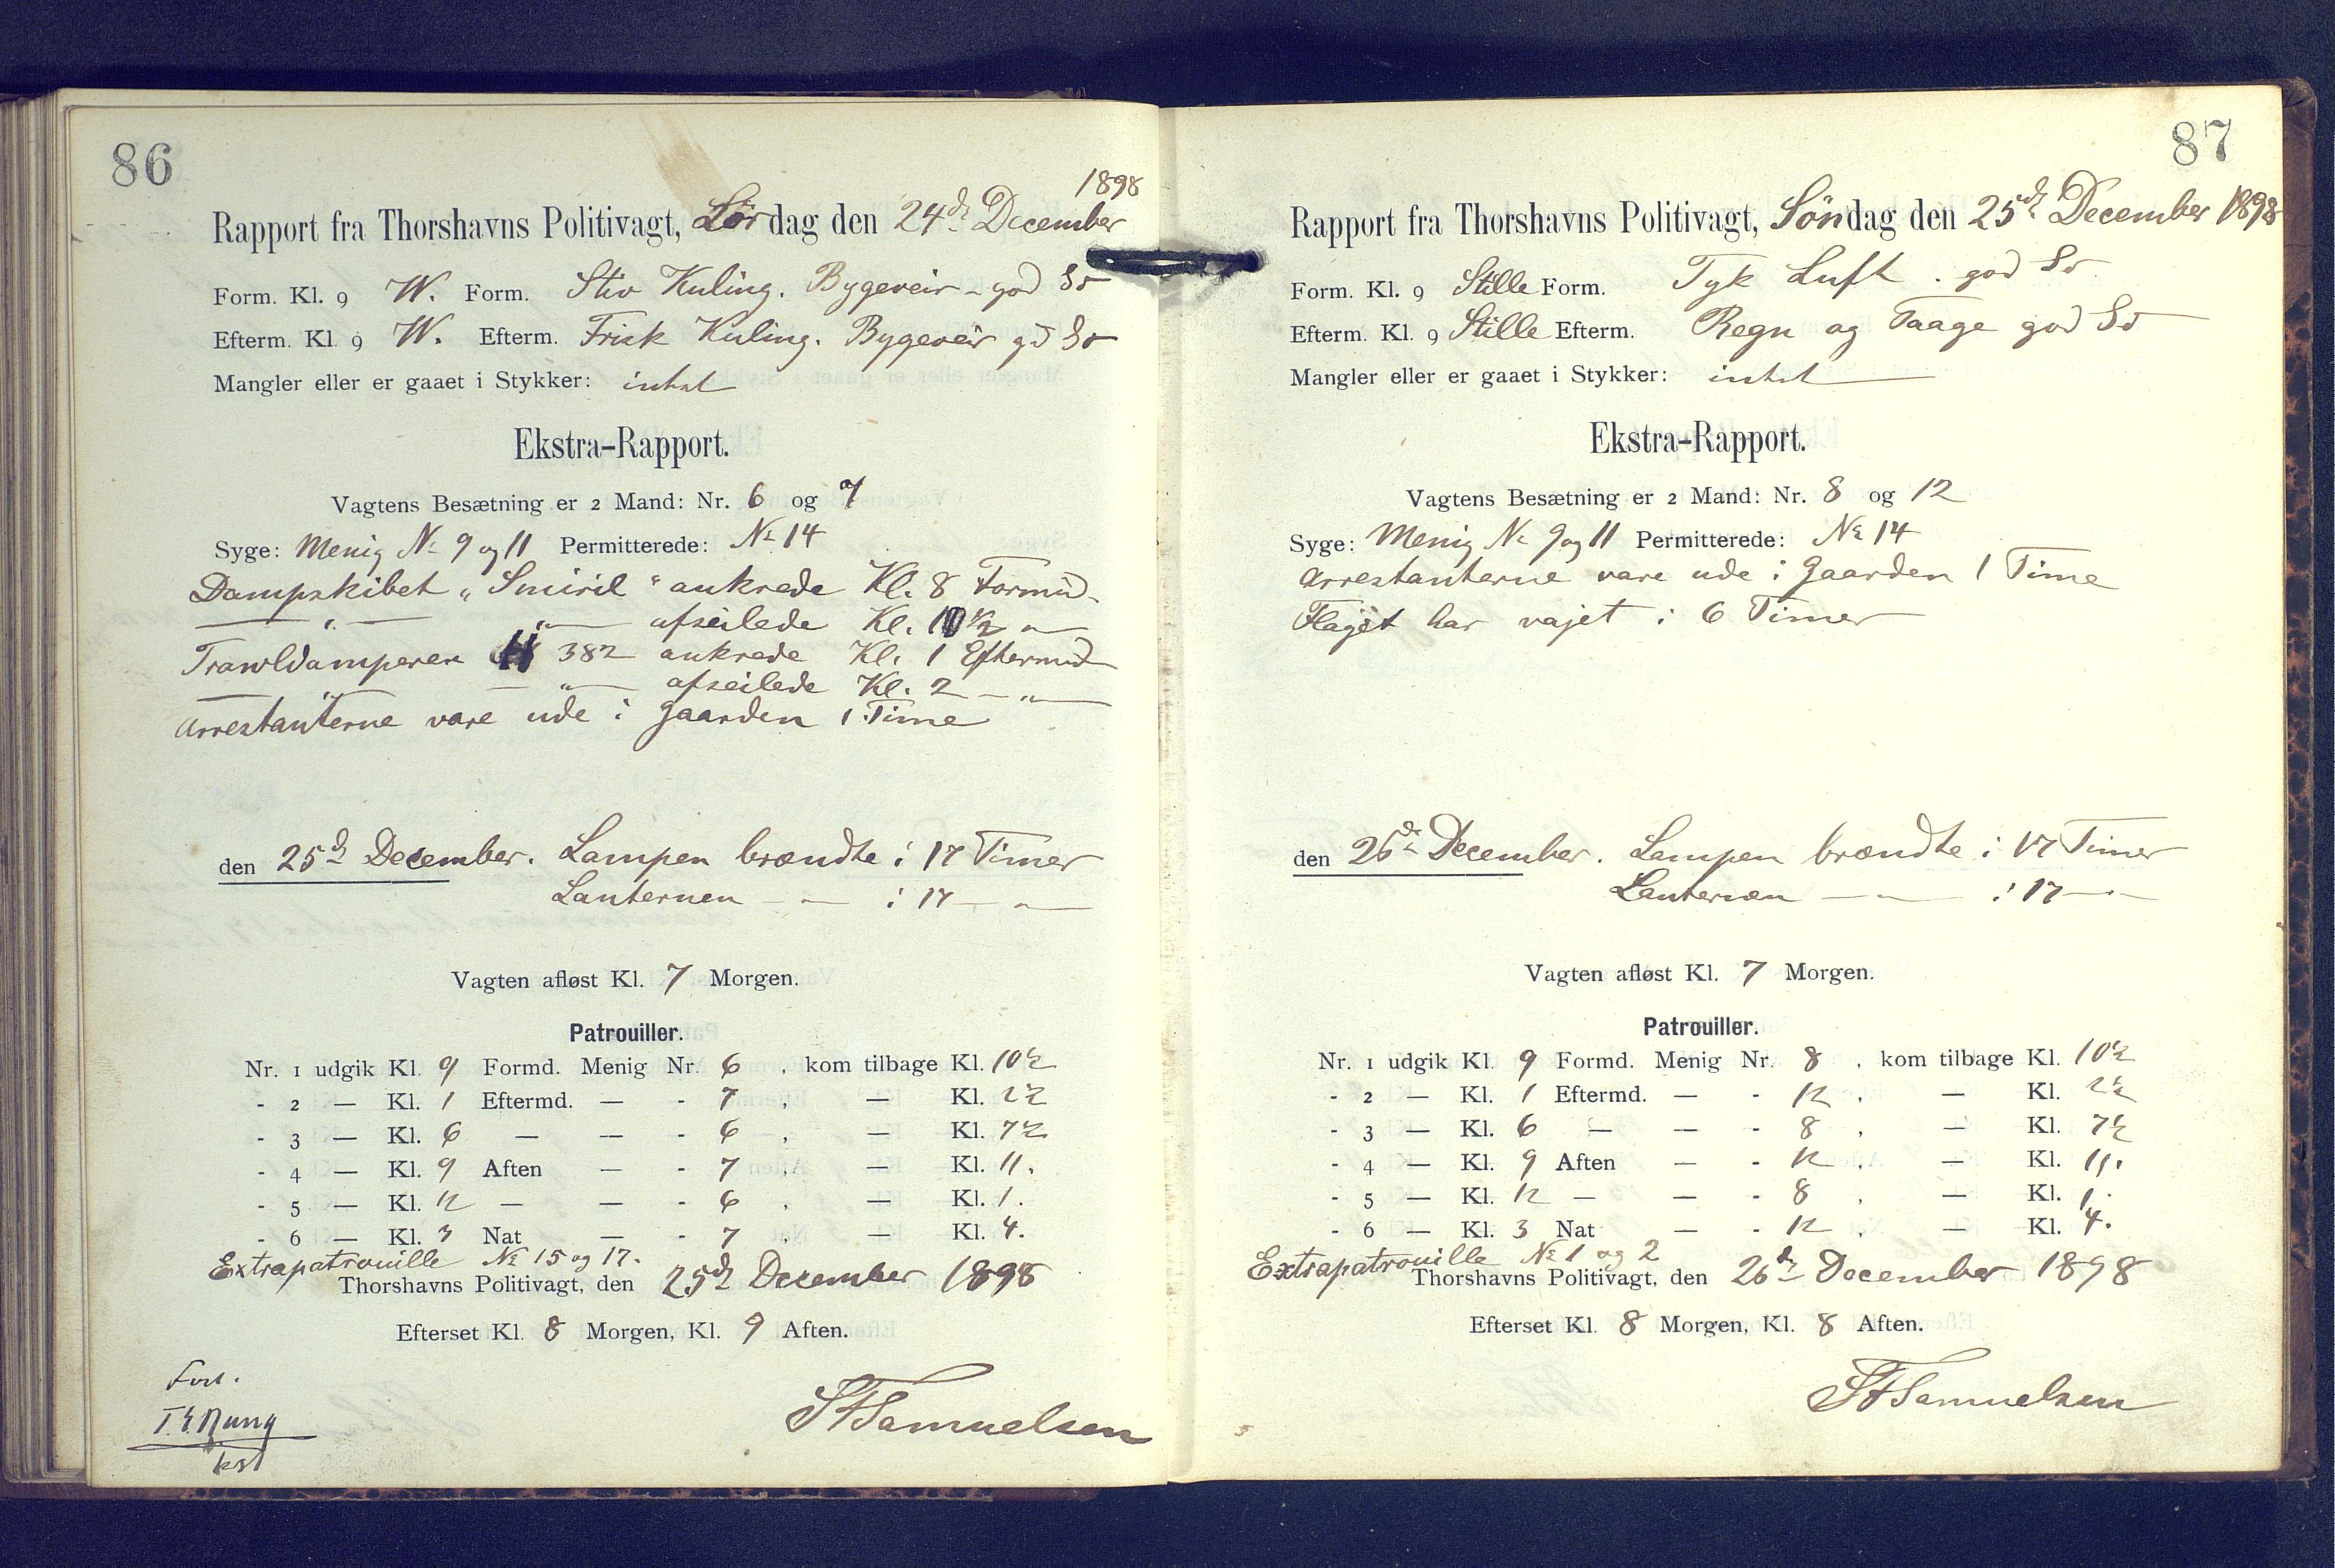 86
1898
Rapport fra Thorshavns Politivagt, Lördag den 24de December
Form. Kl. 9 W. Form. Stiv Kuling. Bygeveir - god So
Efterm. Kl. 9 W. Efterm. Frisk Kuling. Bygeveir gd So
Mangler eller er gaaet i Stykker: intet
Ekstra-Rapport.
Vagtens Besætning er 2 Mand: Nr. 6 og 7
Syge: Menig № 9 og 11 Permitterede: № 14
Dampskibet „Smiril“ ankrede Kl. 8 Formid
— „ — „ — afseilede Kl. 10½ „
Trawldamperen H 382 ankrede Kl. 1 Eftermid
— „ — „ — afseilede Kl. 2 — „ —
Arrestanterne vare ude i Gaarden 1 Time
den 25de December. Lampen brændte i 17 Timer
Lanternen — „ — i 17 — „ —
Vagten afløst Kl. 7 Morgen.
Patrouiller.
Nr. 1 udgik Kl. 9 Formd. Menig Nr. 6 , kom tilbage Kl. 10½
- 2 — Kl. 1 Eftermd. — - 7 , — Kl. 2½
- 3 — Kl. 6 — — - 6 , — Kl. 7½
- 4 — Kl. 9 Aften — - 7 , — Kl. 11.
- 5 — Kl. 12 — — - 6 , — Kl. 1.
- 6 — Kl. 3 Nat — - 7 , — Kl. 4.
Extrapatrouille № 15 og 17.
Thorshavns Politivagt, den 25de December 1898
Efterset Kl. 8 Morgen, Kl. 9 Aften.
Samuelsen
87
Rapport fra Thorshavns Politivagt, Söndag den 25de December 1898
Form. Kl. 9 Stille Form. Tyk Luft . god So
Efterm. Kl. 9 Stille Efterm. Regn og Taage god So
Mangler eller er gaaet i Stykker: intet
Ekstra-Rapport.
Vagtens Besætning er 2 Mand: Nr. 8 og 12
Syge: Menig № 9 og 11 Permitterede: № 14
Arrestanterne vare ude i Gaarden 1 Time
Flaget har vajet i 6 Timer
den 26de December. Lampen brændte i 17 Timer
Lanternen — „ — i 17 — „ —
Vagten afløst Kl. 7 Morgen.
Patrouiller.
Nr. 1 udgik Kl. 9 Formd. Menig Nr. 8 , kom tilbage Kl. 10½
- 2 — Kl. 1 Eftermd. — - 12 , — Kl. 2½
- 3 — Kl. 6 — — - 8 , — Kl. 7½
- 4 — Kl. 9 Aften — - 12 , — Kl. 11.
- 5 — Kl. 12 — — - 8 , — Kl. 1.
- 6 — Kl. 3 Nat — - 12 , — Kl. 4.
Extrapatrouille № 1 og 2
Thorshavns Politivagt, den 26de December 1898
Efterset Kl. 8 Morgen, Kl. 8 Aften.
Samuelsen